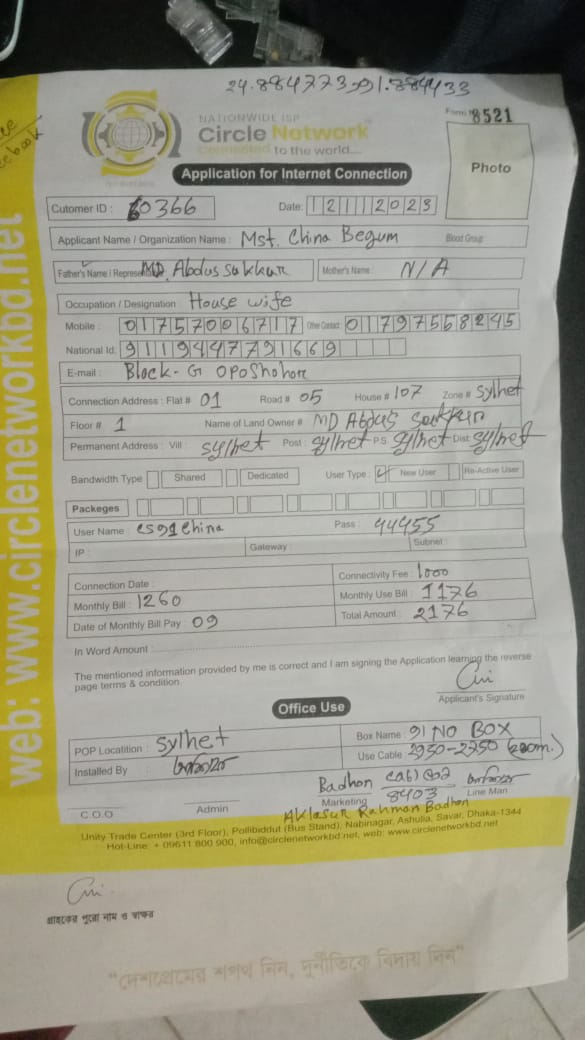 24.884773,91.884433
NATIONWIDE ISP
Circle Network
Connected to the world....
Form # 8521
Photo
Application for Internet Connection
Cutomer ID : 60366 Date: 12112023
Applicant Name / Organization Name : Mst. China Begum Blood Group:
Father's Name / Represent MD. Abdus sukkur Mother's Name : N/A
Occupation / Designation : House wife
Mobile : 01757006717 Other Contact : 01797558245
National Id: 9119447791669
E-mail : Block-G oposhohor
Connection Address : Flat # 01 Road # 05 House # 107 Zone # Sylhet
Floor # 1 Name of Land Owner # MD Abdus sukkur
Permanent Address : Vill : sylhet Post : sylhet P.S. sylhet Dist. sylhet
Bandwidth Type Shared Dedicated User Type : New User Re-Active User
Packeges
User Name : cs91china Pass : 44455
IP : Gateway : Subnet :
Connection Date : Connectivity Fee : 1000
Monthly Bill : 1260 Monthly Use Bill : 1176
Date of Monthly Bill Pay : 09 Total Amount : 2176
In Word Amount :
The mentioned information provided by me is correct and I am signing the Application learning the reverse
page terms & condition.
Applicant's Signature
Office Use
POP Locatition : Sylhet Box Name : 91 NO BOX
Installed By : Use Cable : 2950-2750 (200m.)
Badhon 8403
C.O.O Admin Marketing Line Man
Aklasur Rahman Badhon
Unity Trade Center (3rd Floor), Pollibiddut (Bus Stand), Nabinagar, Ashulia, Savar, Dhaka-1344
Hot-Line: + 09611 800 900, info@circlenetworkbd.net, web: www.circlenetworkbd.net
গ্রাহকের পুরো নাম ও স্বাক্ষর
"দেশপ্রেমের শপথ নিন, দুর্নীতিকে বিদায় দিন"
web: www.circlenetworkbd.net